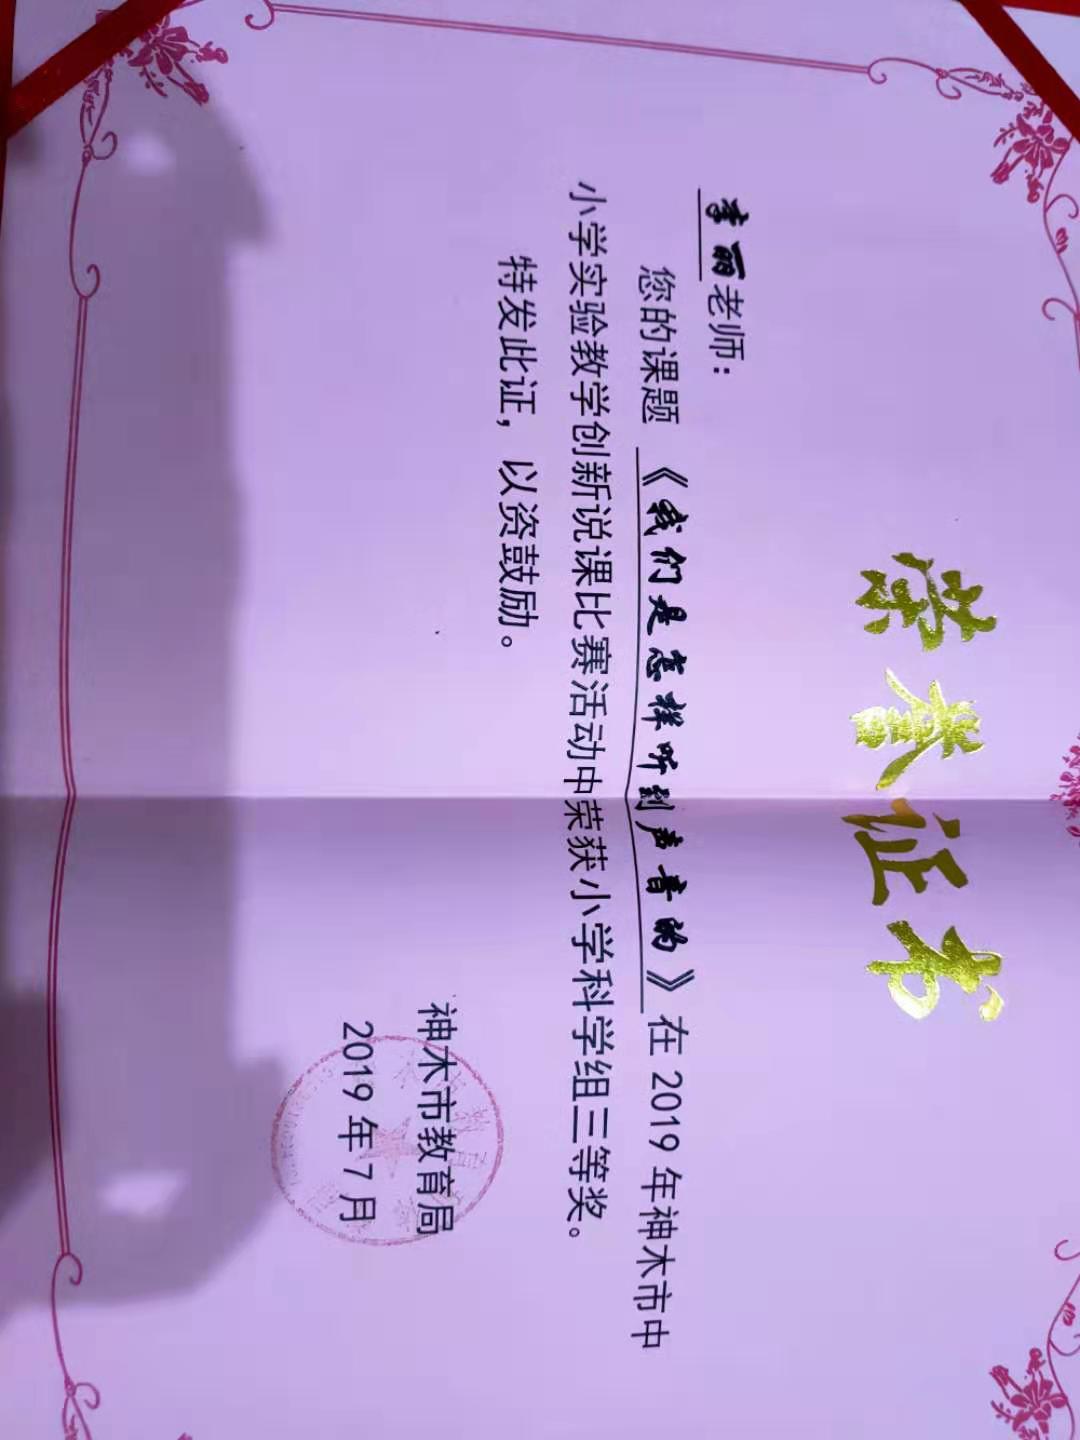 荣誉证书
李丽老师：
您的课题《我们是怎样听到声音的》在2019年神木市中
小学实验教学创新说课比赛活动中荣获小学科学组三等奖。
特发此证，以资鼓励。
神木市教育局
2019年7月